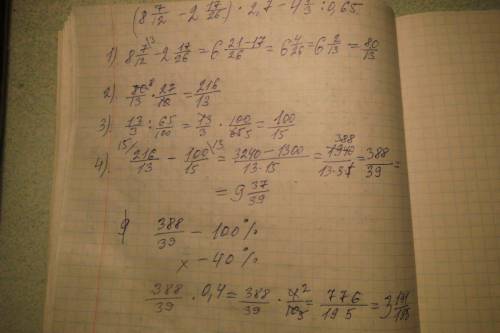 (8 7/12 − 2 17/26) · 2,7 − 4 1/3 : 0,65.
1) 8 7/12 − 2 17/26 = 6 21−17/26 = 6 4/26 = 6 2/13 = 80/13
2). 80/13 · 27/10 = 216/13
3). 13/3 : 65/100 = 13/3 · 100/65 = 100/15
4). 216/13 − 100/15 = 3240−1300/13·15 = 1940/13·15 = 388/39 =
= 9 37/39
388/39 − 100%
x − 40%
388/39 · 0,4 = 388/39 · 4/10 = 776/195 = 3